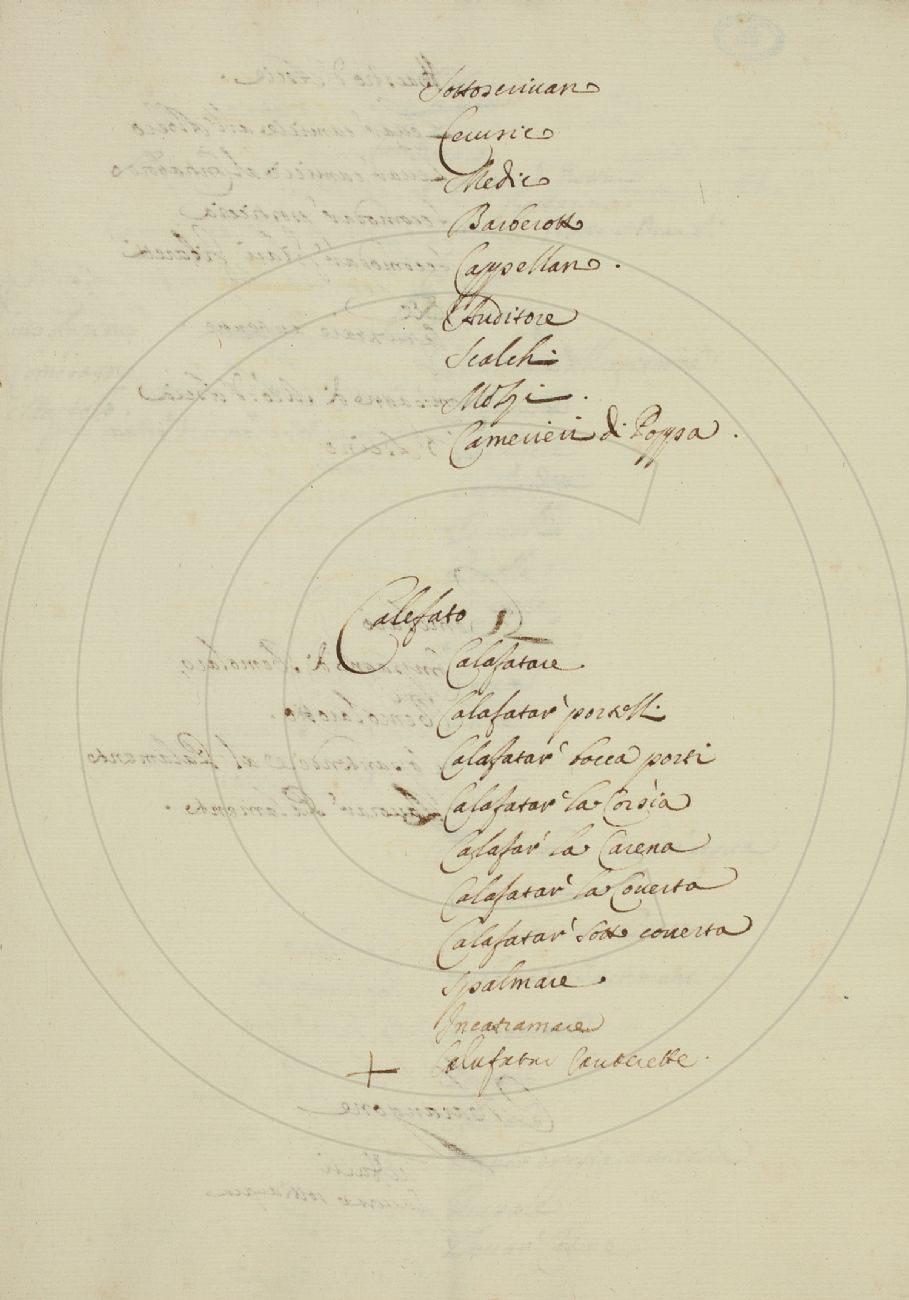 Sottoscrivano
Cerusico
Medico
Barberotto
Cappellano.
Auditore
Scalchi
Mozzi.
Camerieri di Poppa.
Calefato
Calafatare
Calafatar' portelli
Calafatar' bocca porti
Calafatar' la Corsia
Calafar' la Carena
Calafatar' la Couerta
Calafatar' sotto couerta
Spalmare.
Incatramare
+ Calafatar Canterette.